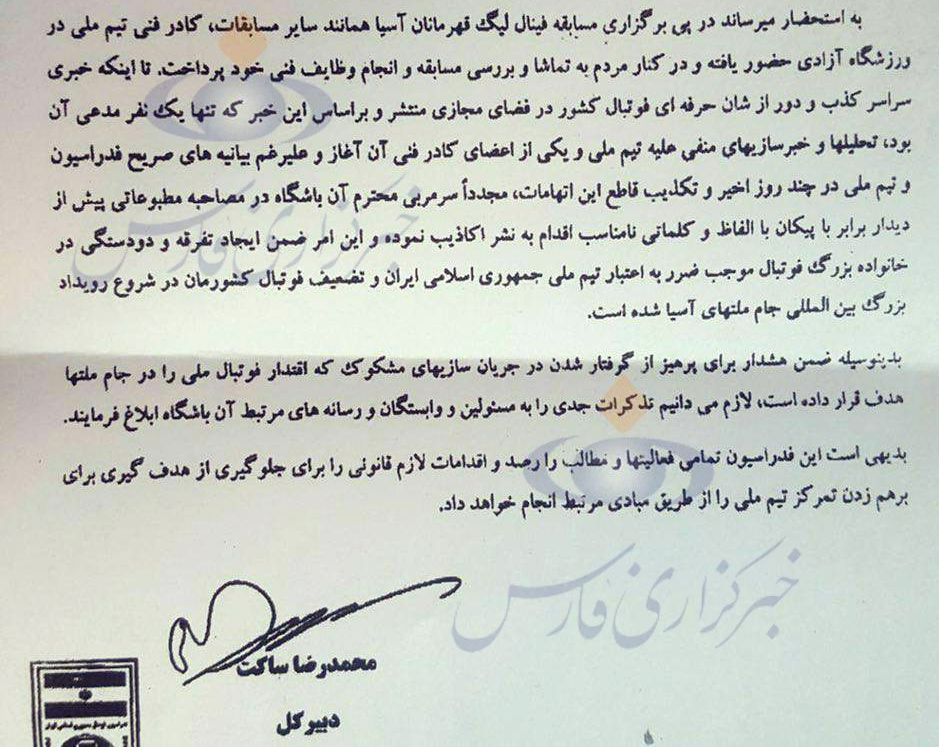 به استحضار میرساند در پی برگزاری مسابقه فینال لیگ قهرمانان آسیا همانند سایر مسابقات، کادر فنی تیم ملی در
ورزشگاه آزادی حضور یافته و در کنار مردم به تماشا و بررسی مسابقه و انجام وظایف فنی خود پرداخت. تا اینکه خبری
سراسر کذب و دور از شان حرفه ای فوتبال کشور در فضای مجازی منتشر و براساس این خبر که تنها یک نفر مدعی آن
بود، تحلیلها و خبرسازیهای منفی علیه تیم ملی و یکی از اعضای کادر فنی آن آغاز و علیرغم بیانیه های صریح فدراسیون
و تیم ملی در چند روز اخیر و تکذیب قاطع این اتهامات، مجدداً سرمربی محترم آن باشگاه در مصاحبه مطبوعاتی پیش از
دیدار برابر با پیکان با الفاظ و کلماتی نامناسب اقدام به نشر اکاذیب نموده و این امر ضمن ایجاد تفرقه و دودستگی در
خانواده بزرگ فوتبال موجب ضرر به اعتبار تیم ملی جمهوری اسلامی ایران و تضعیف فوتبال کشورمان در شروع رویداد
بزرگ بین المللی جام ملتهای آسیا شده است.
بدینوسیله ضمن هشدار برای پرهیز از گرفتار شدن در جریان سازیهای مشکوک که اقتدار فوتبال ملی را در جام ملتها
هدف قرار داده است، لازم می دانیم تذکرات جدی را به مسئولین و وابستگان و رسانه های مرتبط آن باشگاه ابلاغ فرمایند.
بدیهی است این فدراسیون تمامی فعالیتها و مطالب را رصد و اقدامات لازم قانونی را برای جلوگیری از هدف گیری برای
برهم زدن تمرکز تیم ملی را از طریق مبادی مرتبط انجام خواهد داد.
خبرگزاری فارس
خبرگزاری فارس
محمدرضا ساکت
دبیر کل